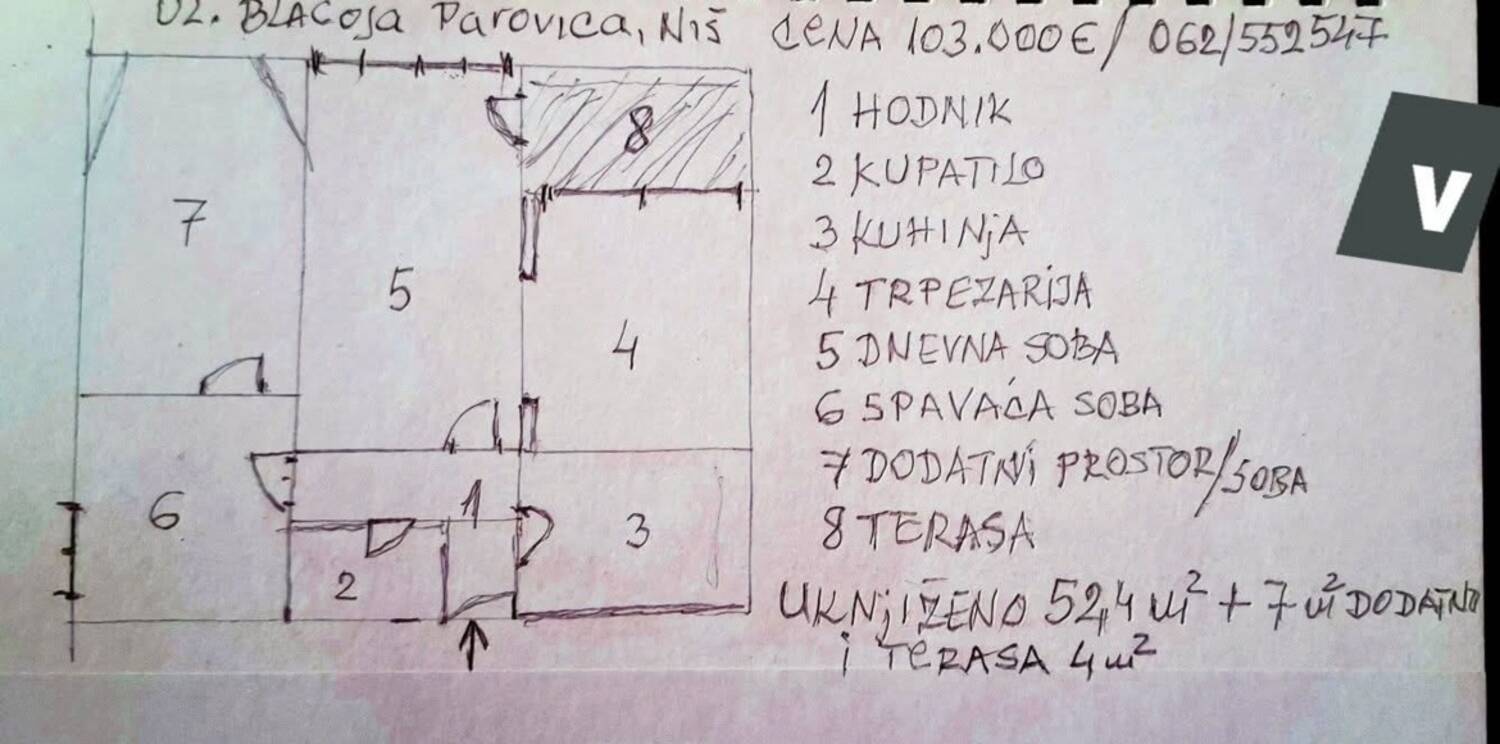 UL. BLAGOJA PAROVIĆA, NIŠ CENA 103.000€/ 062/552547
1 HODNIK
2 KUPATILO
3 KUHINJA
4 TRPEZARIJA
5 DNEVNA SOBA
6 SPAVAĆA SOBA
7 DODATNI PROSTOR/SOBA
8 TERASA
UKNJIŽENO 52,4 m² + 7 m² DODATNO
i TERASA 4m²
8
7
5
4
6
1
3
2
V